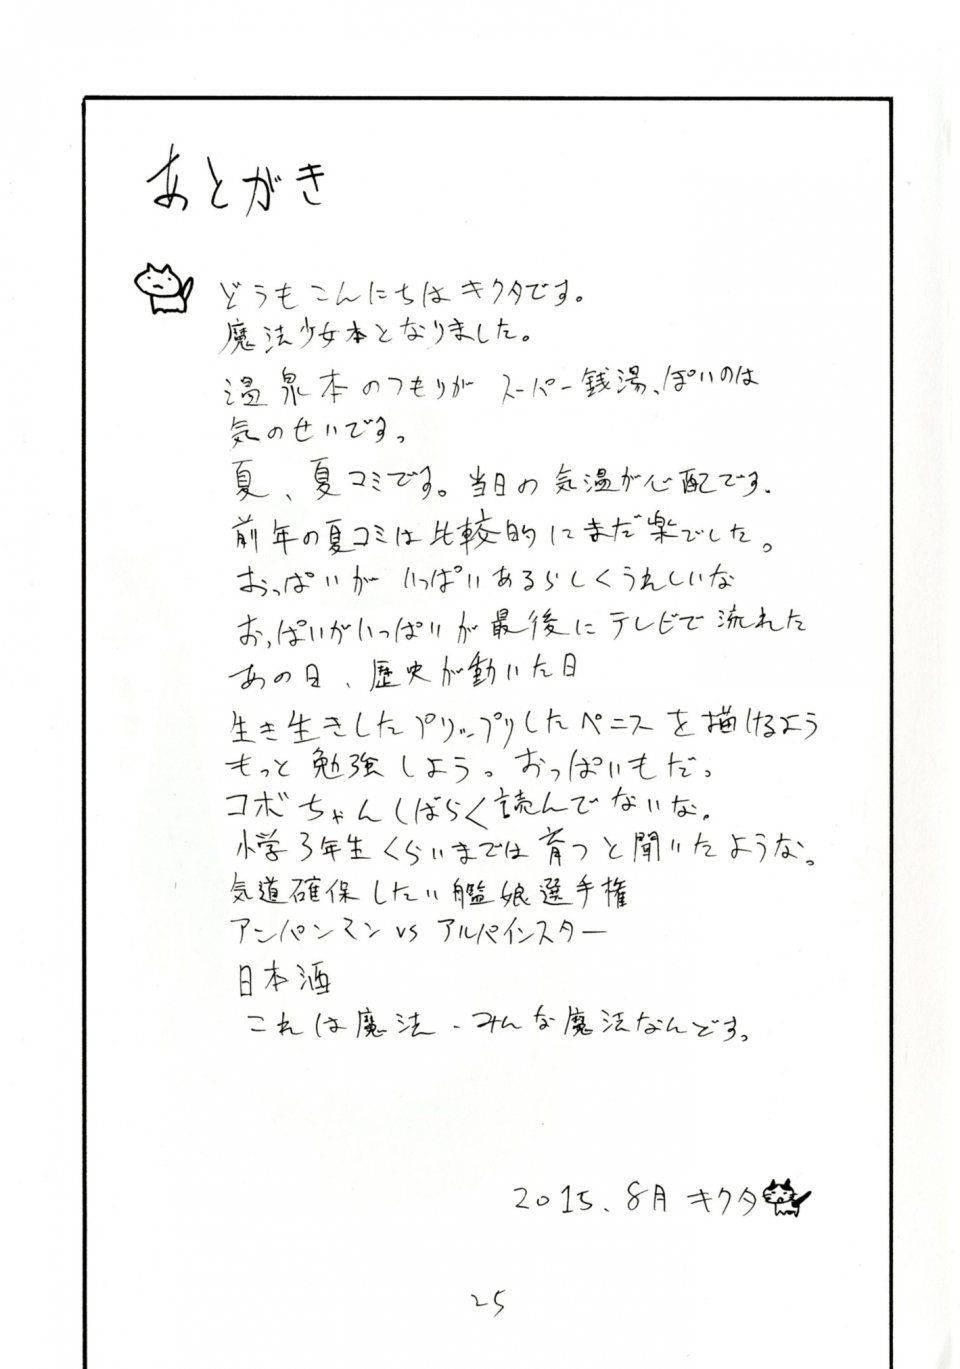 あとがき
どうもこんにちはキクタです。
魔法少女本となりました。
温泉本のつもりが スーパー銭湯、ぽいのは
気のせいです。
夏、夏コミです。当日の気温が心配です.
前年の夏コミは比較的にまだ楽でした。
おっぱいが いっぱいあるらしくうれしいな
おっぱいがいっぱいが最後にテレビで流れた
あの日、歴史が動いた日
生き生きしたプリップリしたペニスを描けるよう
もっと勉強しよう。おっぱいもだ。
コボちゃんしばらく読んでないな。
小学3年生くらいまでは育つと聞いたような。
気道確保したい艦娘選手権
アンパンマン vs アルパインスター
日本酒
これは魔法、みんな魔法なんです。
2015.8月 キクタ
25